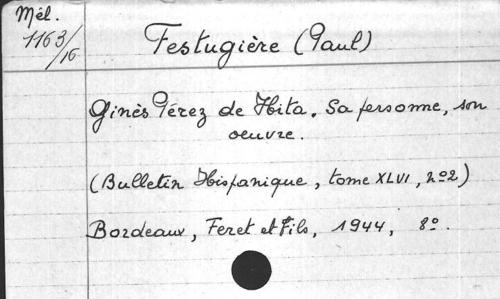 Mél.
1163/16
Festugière (Paul)
Ginès Pérez de Hita. Sa personne, son
oeuvre.
(Bulletin Hispanique, tome XLVI, nº2)
Bordeaux, Feret et Fils, 1944, 8º.